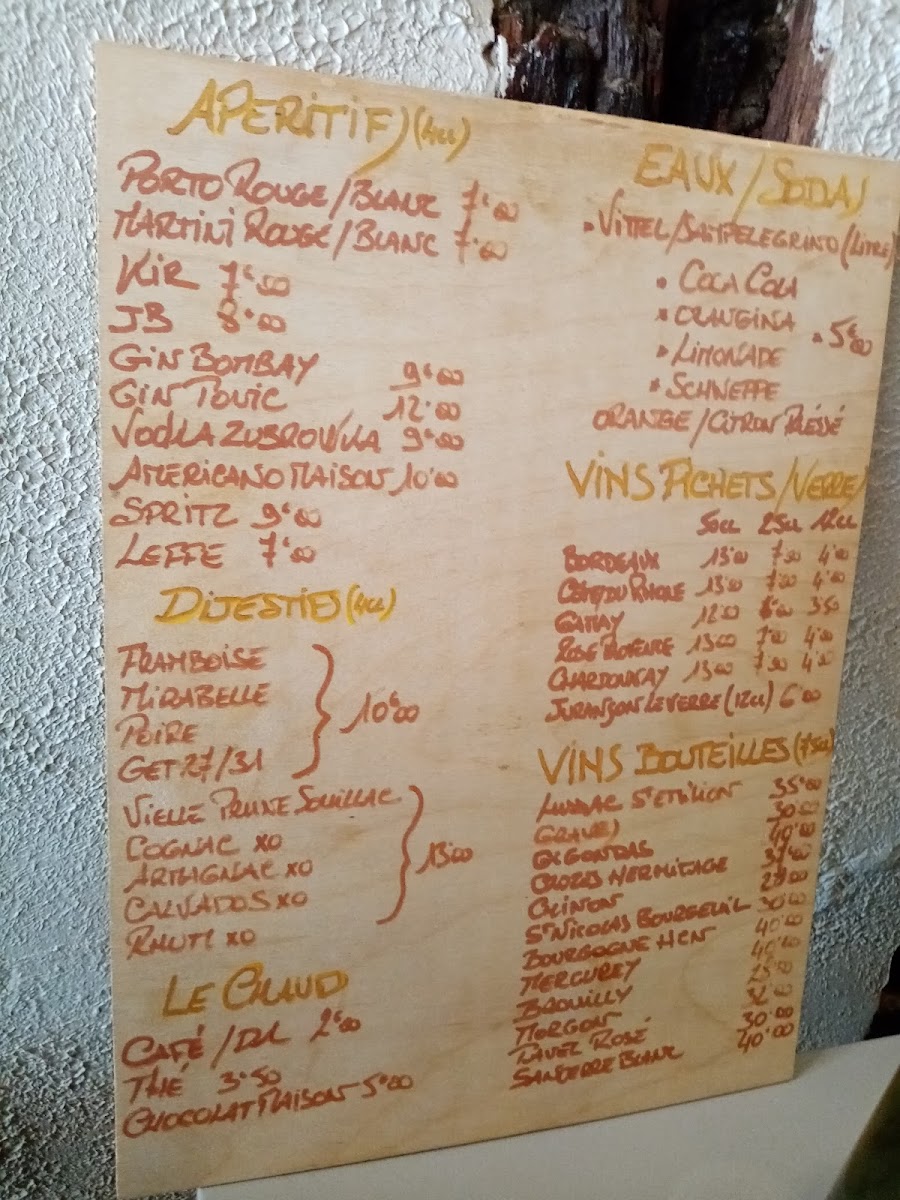 APERITIFS (4cl)
PORTO ROUGE/BLANC 7€00
MARTINI ROUGE/BLANC 7€00
KIR 7€50
JB 8€00
GIN BOMBAY 9€00
GIN TONIC 12€00
VODKA ZUBROWKA 9€00
AMERICANO MAISON 10€00
SPRITZ 9€00
LEFFE 7€00
DIJESTIFS (4cl)
FRAMBOISE
MIRABELLE
POIRE
GET 27/31
10€00
VIELLE PRUNE SOUILLAC
COGNAC XO
ARMAGNAC XO
CALVADOS XO
RHUM XO
13€00
LE CHAUD
CAFÉ / 2€00
THÉ 3€50
CHOCOLAT MAISON 5€00
EAUX/SODAS
VITTEL/SANPELEGRINO (LITRE)
COCA COLA
ORANGINA
LIMONADE
SCHWEPPE
5€00
ORANGE/CITRON PRÉSSÉ
VINS PICHETS/VERRE
50cl 25cl 12cl
BORDEAUX 13€00 7€50 4€00
CÔTE DU RHONE 13€00 7€50 4€00
GAMAY 12€00 6€00 3€50
ROSE PROVENCE 13€00 7€00 4€00
CHARDONNAY 13€00 7€50 4€00
JURANÇON LE VERRE (12cl) 6€00
VINS BOUTEILLES (75cl)
LUSSAC ST EMILION 35€00
GRAVES 30€00
GIGONDAS 40€00
CROZES HERMITAGE
CHINON
ST NICOLAS BOURGEUIL 30€00
BOURGOGNE HCN 40€00
MERCUREY
BROUILLY
MORGON
TAVEL ROSÉ 30€00
SANCERRE BLANC 40€00